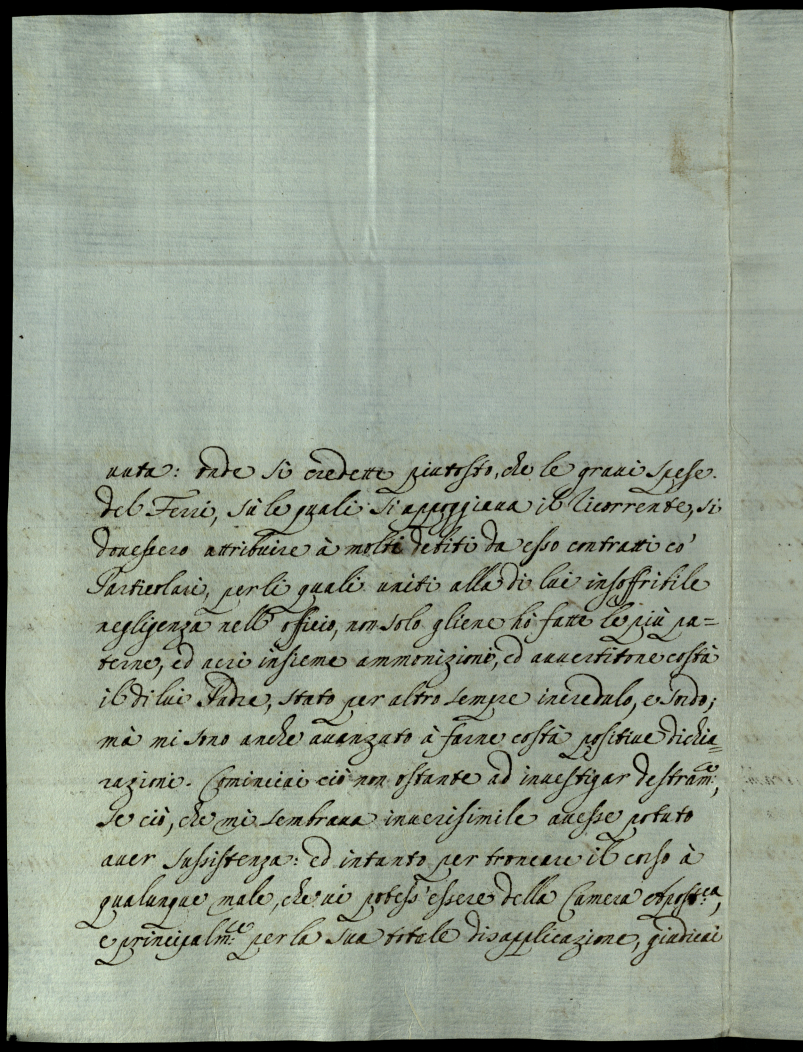 nuta: onde si credette piutosto, che le graui spese
del Ferri, sù le quali si appoggiaua il ricorrente, si
douessero attribuire à molti debiti da esso contratti co'
Particolari, per li quali uniti alla di lui insoffribile
negligenza nell' officio, non solo gliene hò fatte le più pa=
terne, ed acri insieme ammonizioni, ed auuertitone costà
il di lui Padre, stato per altro sempre incredulo, e sordo;
mà mi sono anche auanzato à farne costà positiue dichia=
razioni. Cominciai ciò non ostante ad inuestigar destram.te,
se ciò, che mi sembraua inuerisimile auesse potuto
auer sussistenza: ed intanto per troncare il corso à
qualunque male, che ui potess' essere della Camera Apost.ca,
e principalm.te per la sua totale disapplicazione, giudicai